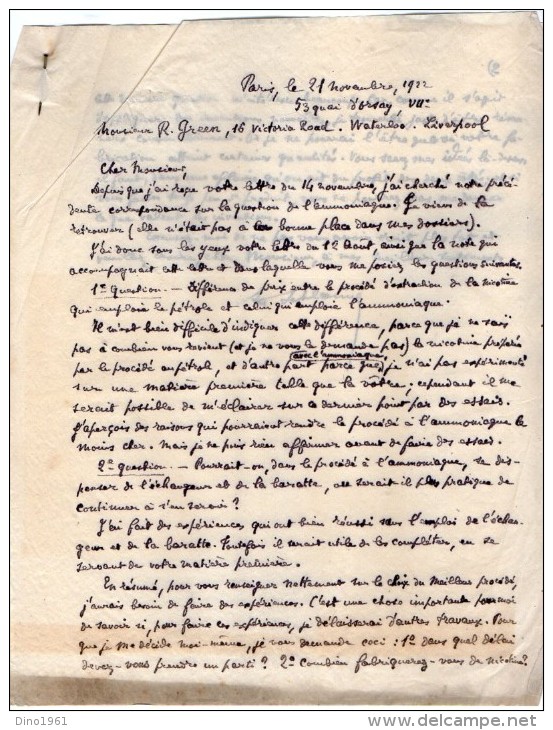 Paris, le 21 novembre, 1922
53 quai d'orsay VIIe
Monsieur R. Green, 16 Victoria Road. Waterloo. Liverpool
Cher Monsieur,
Depuis que j'ai reçu votre lettre du 14 novembre, j'ai cherché notre précé-
dente correspondance sur la question de l'ammoniaque. Je viens de la
retrouver (elle n'était pas à la bonne place dans mes dossiers).
J'ai donc sous les yeux votre lettre du 12 Août, ainsi que la note qui
accompagnait cette lettre et dans laquelle vous me posiez les questions suivantes.
1re Question. — Différence de prix entre le procédé d'extraction de la nicotine
qui emploie le pétrole et celui qui emploie l'ammoniaque.
Il m'est bien difficile d'indiquer cette différence, parce que je ne sais
pas à combien vous revient (et je ne vous le demande pas) la nicotine préparée
par le procédé au pétrol, et d'autre part parce que, je n'ai pas expérimenté
(avec l'ammoniaque)
sur une matière première telle que la votre. cependant il me
serait possible de m'éclairer sur ce dernier point par des essais.
J'aperçois des raisons qui pourraient rendre le procédé à l'ammoniaque le
moins cher. Mais je ne puis rien affirmer avant de faire des essais.
2e question. — Pourrait-on, dans le procédé à l'ammoniaque, se dis-
penser de l'échangeur et de la baratte, ou serait il plus pratique de
continuer à s'en servir?
J'ai fait des expériences qui ont bien réussi sans l'emploi de l'échan-
geur et de la baratte. Toutefois il serait utile de les compléter, en se
servant de votre matière première.
En résumé, pour vous renseigner nettement sur le choix du meilleur procédé,
j'aurais besoin de faire des expériences. C'est une chose importante pour moi
de savoir si, pour faire ces expériences, je délaisserai d'autres travaux. Pour
que je me décide moi-même, je vous demande ceci : 1° dans quel délai
devez-vous prendre un parti? 2° Combien fabriquerez-vous de nicotine?
Dino1961